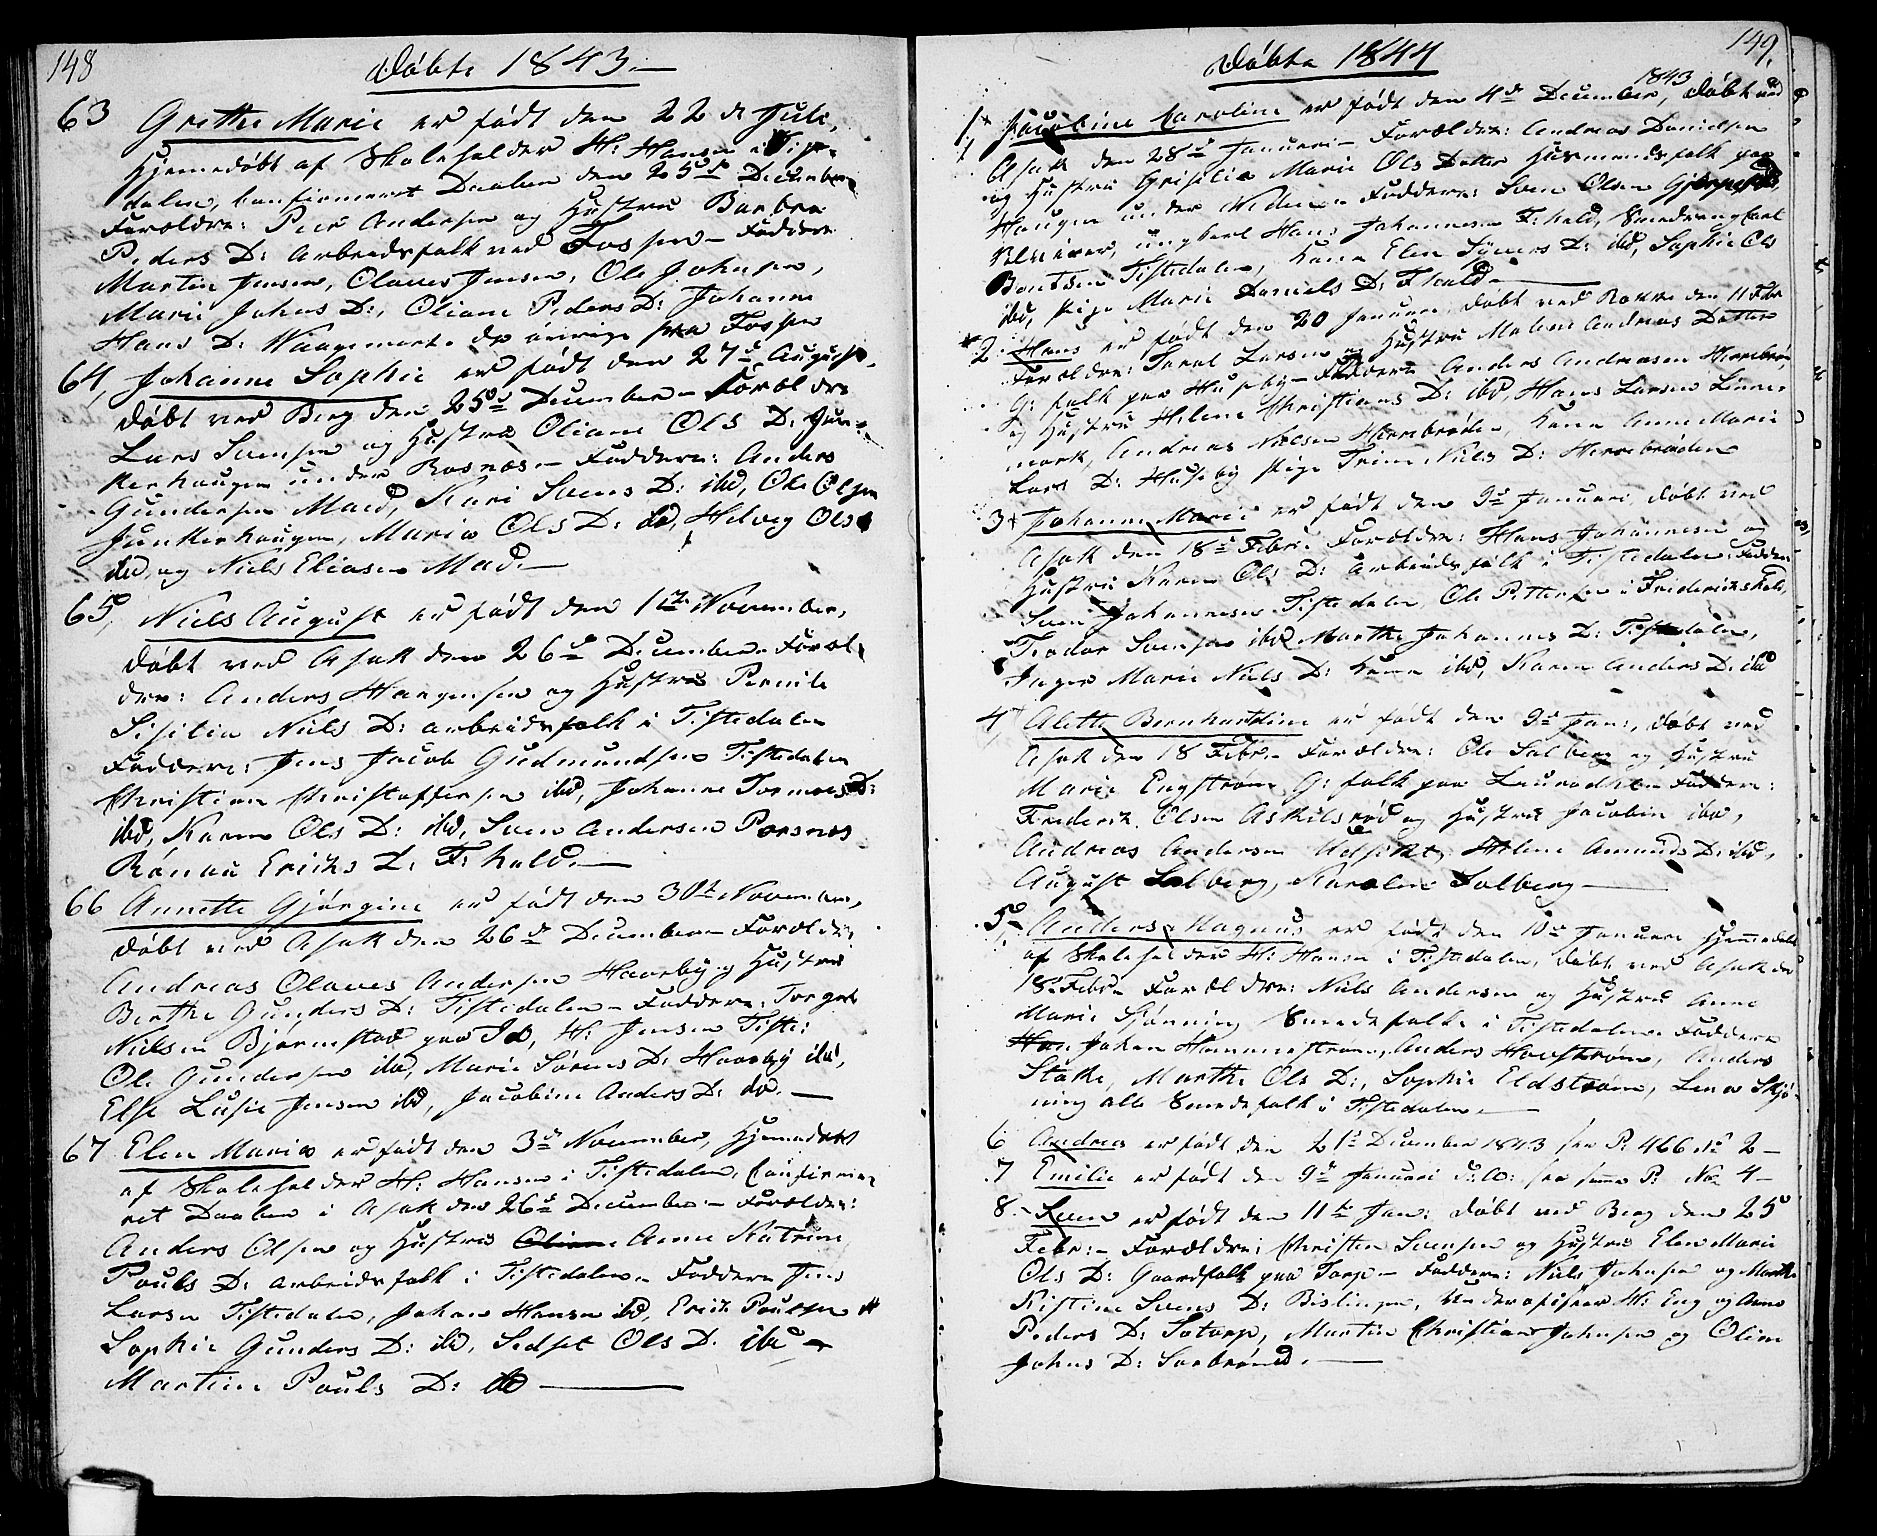 148
Døbte 1843.
63 Grethe Marie er født den 22de Juli,
hjemmedøbt af Skoleholder H: Hansen i Tiste-
dalen, confirmeret Daaben den 25de December
Forældre: Peer Andersen og Hustru Barbra
Peders D: Arbeidsfolk ved Fossen - Faddere
Martin Jensen, Olaves Jensen, Ole Johnsen,
Marie Johns D:, Oliane Peders D: Johanne
Hans D: de øvrige fra Fossen
64, Johanne Sophie er født den 27de August,
døbt ved Berg den 25de December - Forældre
Lars Svensen og Hustru Oliane Ols D: Jun-
kerhaugen under Rosnæs - Faddere: Anders
Gundersen Maed, Kari Svens D: ibd, Ole Olsen
Junkerhaugen, Maria Ols D: ibd, Helvig Ols
ibd, og Niels Eliasen Mad.
65, Niels August er født den 1te November,
døbt ved Asak den 26de December. Foræl-
dre: Anders Haagensen og Hustru Pernile
Sisilia Niels D: arbeidsfolk i Tistedalen
Faddere: Jens Jacob Gudmundsen Tistedalen
Christian Christoffersen ibd, Johanne Tormos D:
ibd, Karen Ols D: ibd, Sven Andersen Porsnes
Rønau Erichs D: F:hald.
66 Annette Gjørgine er født den 30te November,
døbt ved Asak den 26de December - Forældre,
Andreas Olaves Andersen Haaeby og Hustru
Berthe Gunders D: Tistedalen - Faddere: Torger
Nielsen Bjørnstad paa Id, H: Jensen Tiste:
Ole Gundersen ibd, Marie Sørens D: Haaeby ibd,
Else Lusie Jensen ibd, Jacobine Anders D: do.
67 Elen Maria er født den 3de November, hjemmedøbt
af Skoleholder H: Hansen i Tistedalen, Confirme-
ret Daaben i Asak den 26de December - Forældre:
Anders Olsen og Hustru Oliane Anne Katrine
Pouls D: arbeidsfolk i Tistedalen - Faddere Jens
Larsen Tistedalen, Johan Hansen ibd, Erich Poulsen
Sophie Gunders D: ibd, Sidsel Ols D: ibd
Martine Pouls D: do
149.
Døbte 1844
1, Jacobine Caroline er født den 4de December 1843, døbt ved
Asak den 28de Januari - Forældre: Andreas Danielsen
og Hustru Grisilia Marie Ols Datter Husmandsfolk paa
Haugen under Veden - Faddere: Sven Olsen
ungkarl Hans Johannesen F:hald, Smedsvend Carl
Bentsen Tistedalen, Kone Elen Syvers D: ibd, Sophie Ols
ibd, pige Marie Daniels D: F:hald
2. Hans er født den 20 Januari, døbt ved Rokke den 11 Febr
Forældre: Tarel Larsen og Hustru Malene Andreas Datter
G: folk paa Huseby - Faddere Anders Andreasen Herrebrøden
og Hustru Helene Christians D: ibd, Hans Larsen Linne-
mark, Andreas Nielsen Herrebrøden, Kone Anne Marie
Lars D: Huseby pige Trine Niels D: Herrebrøden
3 Johanne Marie er født den 9de Januari, døbt ved
Asak den 18de Febr: Forældre: Hans Johannesen og
Hustru Karen Ols D: Arbeidsfolk i Tistedalen. Faddere
Sven Johannesen Tistedalen Ole Pettersen i Friderikshald,
Teodor Svensen ibd Marthe Johannes D: Tistedalen,
Inger Marie Niels D: Kone ibd, Karen Anders D: ibd
4, Alette Bernhardine er født den 9de Jan:, døbt ved
Asak den 18 Febr. - Forældre: Ole Solberg og Hustru
Marie Engstrøm G: folk paa Faddere:
Frederik Olsen Askilsrød og Hustru Jacobin ibd,
Andreas Andersen Udsikt, Helene Amunds D: ibd,
August Solberg, Karoline Solberg
5, Anders Magnus er født den 10de Januari hjemmedøbt
af Skoleholder H: Hansen i Tistedalen, døbt ved Asak den
18. Febr. Forældre: Niels Andersen og Hustru Anne
Marie Skjønning Smedefolk i Tistedalen. Faddere
Han Johan Hammerstrøm, Anders Hovstrøm, Anders
Stake, Marthe Ols D:, Sophie Eldstrøm, Lena Skjø-
ning alle Smedefolk i Tistedalen.
6 Andrea er født den 21de December 1843 see P: 466 No 2 -
7 Emilie er født den 9de Januari d: A: see samme P: No 4 -
8. Sven er født den 11te Jan: døbt ved Berg den 25
Febr: - Forældre: Christen Svensen og Hustru Elen Marie
Ols D: Gaardfolk paa Torp - Faddere: Niels Johnsen og Marthe
Kistine Svens D: Bislingen, Underofiseer H: Eng og Anne
Peders D: Sotorp, Martin Christian Johnsen og Oline
Johns D: Sorbrøned.